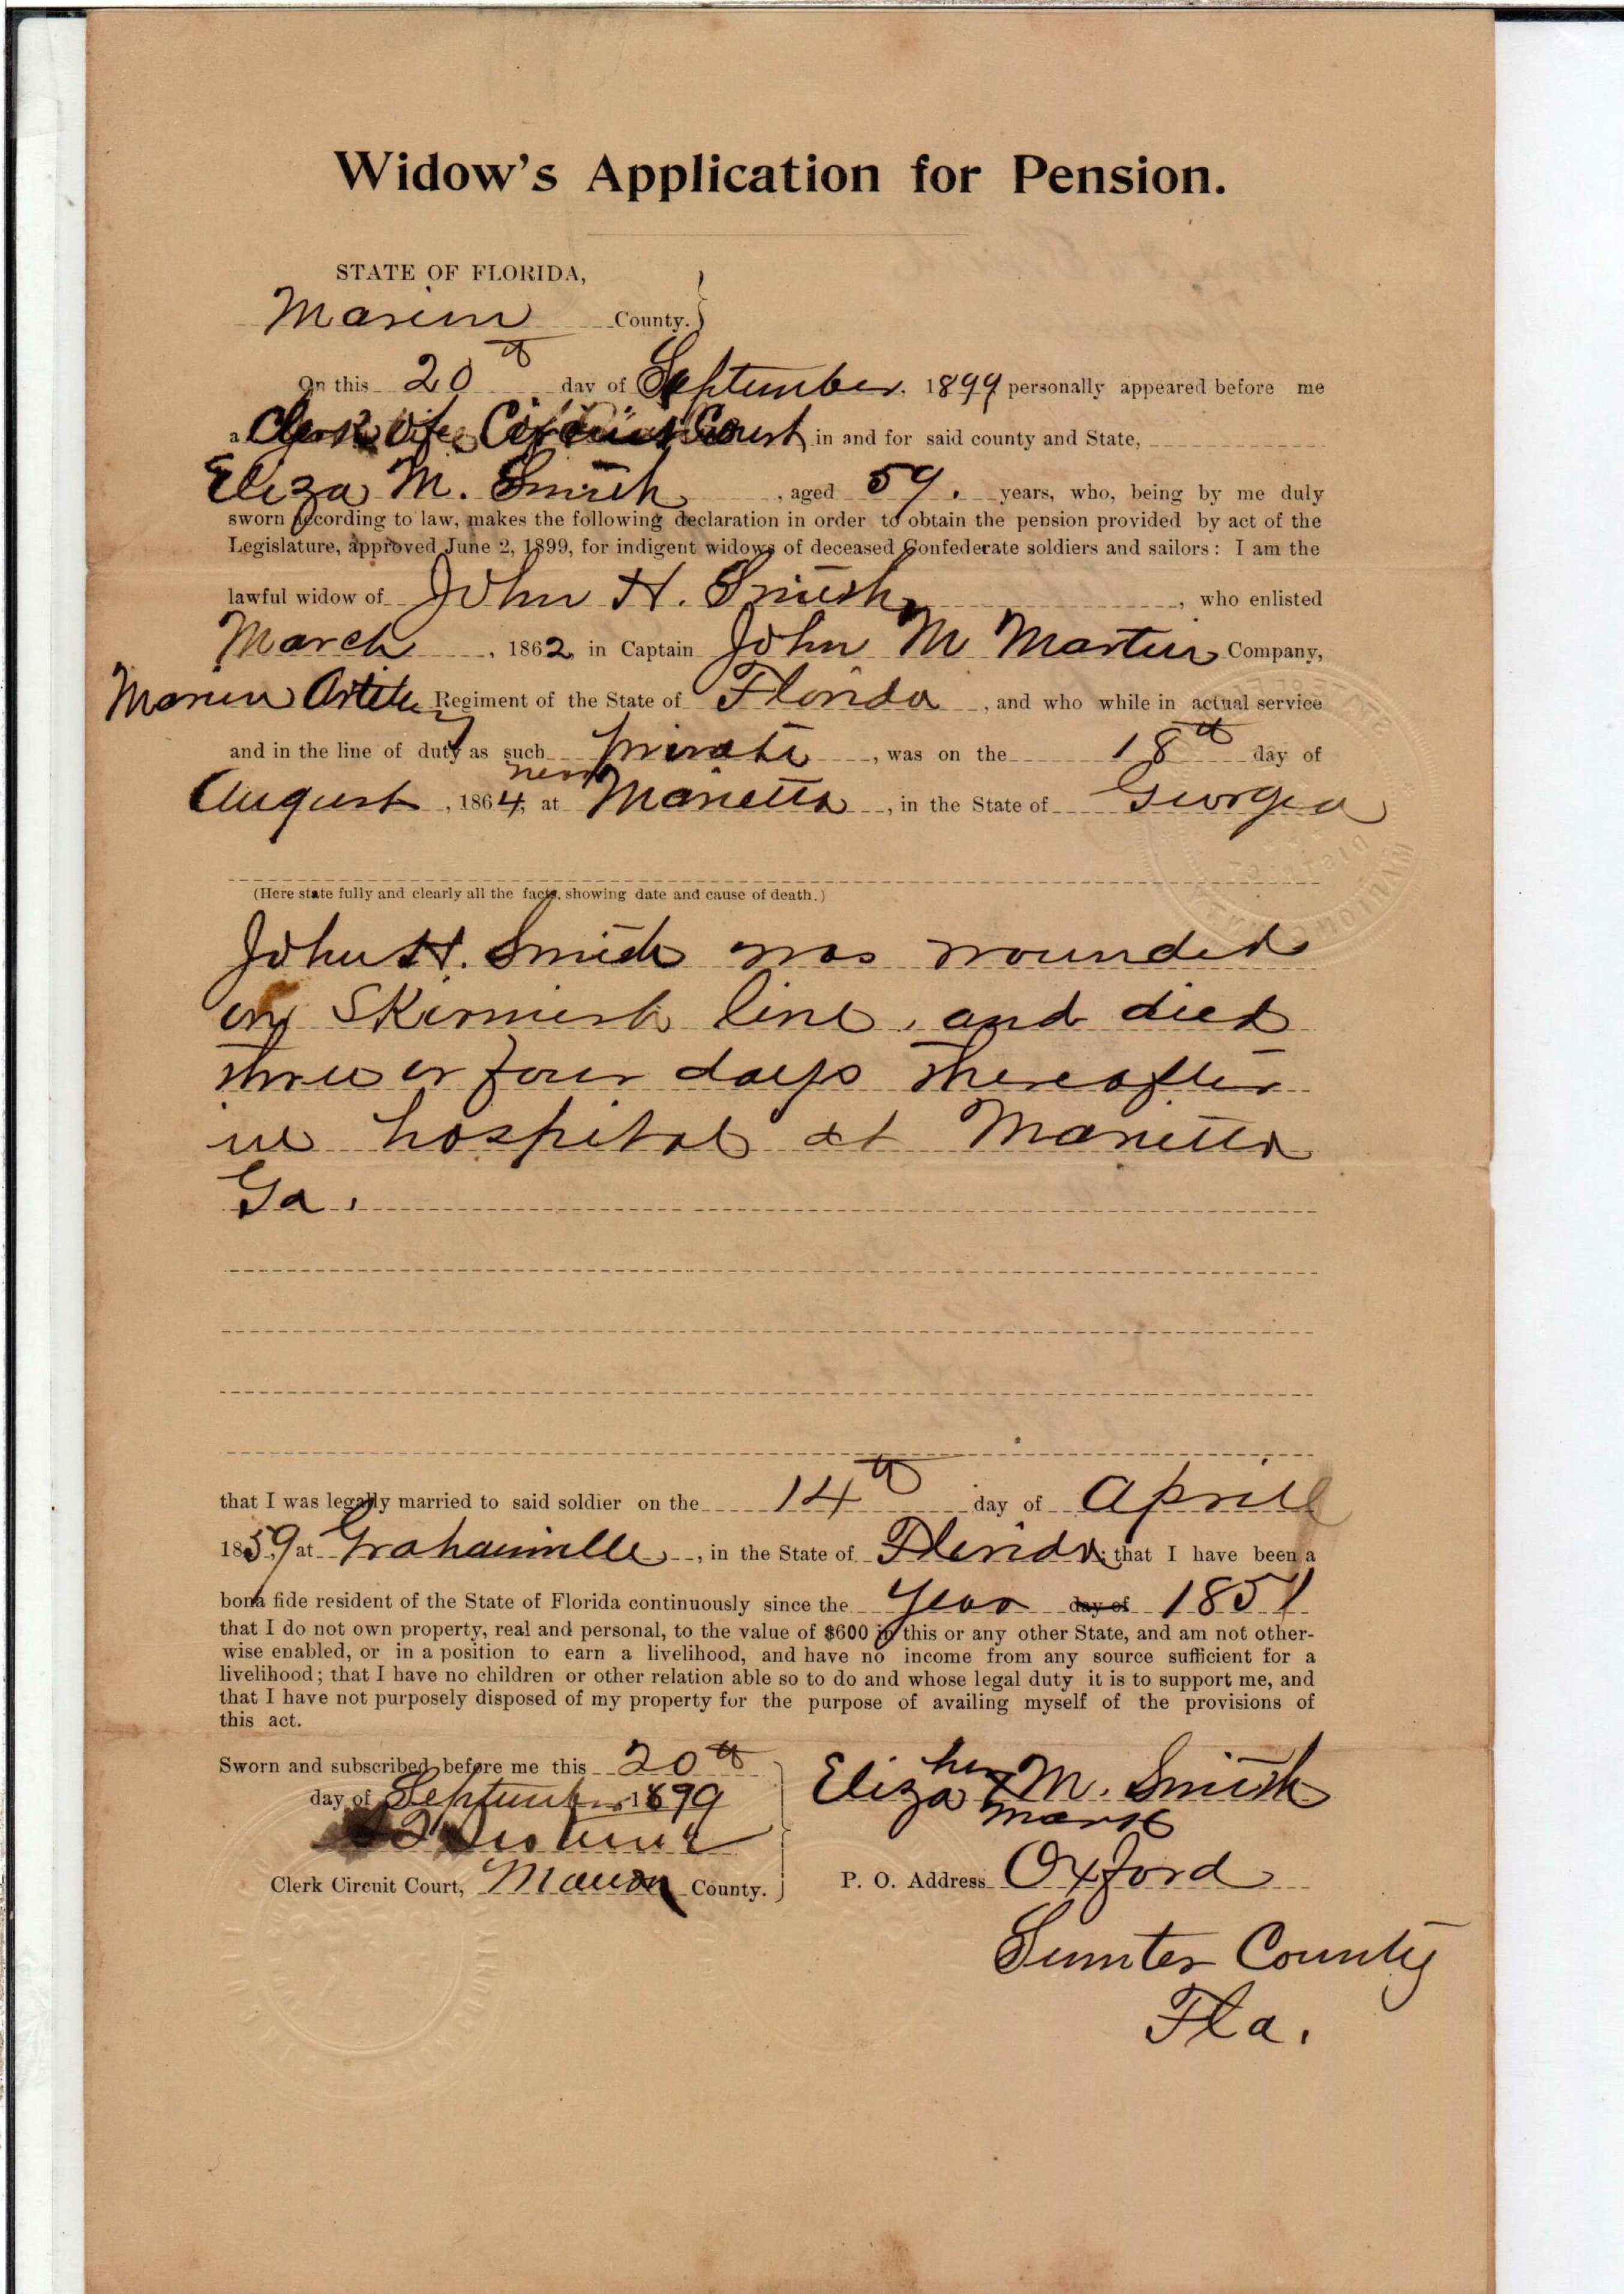 Widow's Application for Pension.
STATE OF FLORIDA,
Marion County.
On this 20th day of September, 1899 personally appeared before me
a Clerk of Circuit Court in and for said county and State,
Eliza M. Smith, aged 59. years, who, being by me duly
sworn according to law, makes the following declaration in order to obtain the pension provided by act of the
Legislature, approved June 2, 1899, for indigent widows of deceased Confederate soldiers and sailors: I am the
lawful widow of John H. Smith, who enlisted
March, 1862, in Captain John M Martin Company,
Marion Artillery Regiment of the State of Florida, and who while in actual service
and in the line of duty as such private, was on the 18th day of
August, 1864, at near Marietta, in the State of Georgia
(Here state fully and clearly all the facts, showing date and cause of death.)
John H. Smith was wounded
on Skirmish line, and died
three or four days thereafter
in hospital at Marietta
Ga.
that I was legally married to said soldier on the 14th day of Aprill
1859, at Grahamville, in the State of Florida; that I have been a
bona fide resident of the State of Florida continuously since the year day of 1851
that I do not own property, real and personal, to the value of $600 in this or any other State, and am not other-
wise enabled, or in a position to earn a livelihood, and have no income from any source sufficient for a
livelihood; that I have no children or other relation able so to do and whose legal duty it is to support me, and
that I have not purposely disposed of my property for the purpose of availing myself of the provisions of
this act.
Sworn and subscribed before me this 20th
day of September 1899
Clerk Circuit Court, Marion County.
her
Eliza x M. Smith
mark
P. O. Address Oxford
Sumter County
Fla.